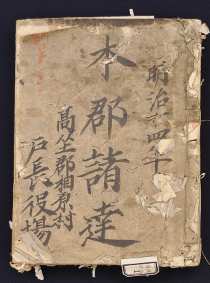 明治十四年
本郡諸達
高座郡相原村
戸長役場